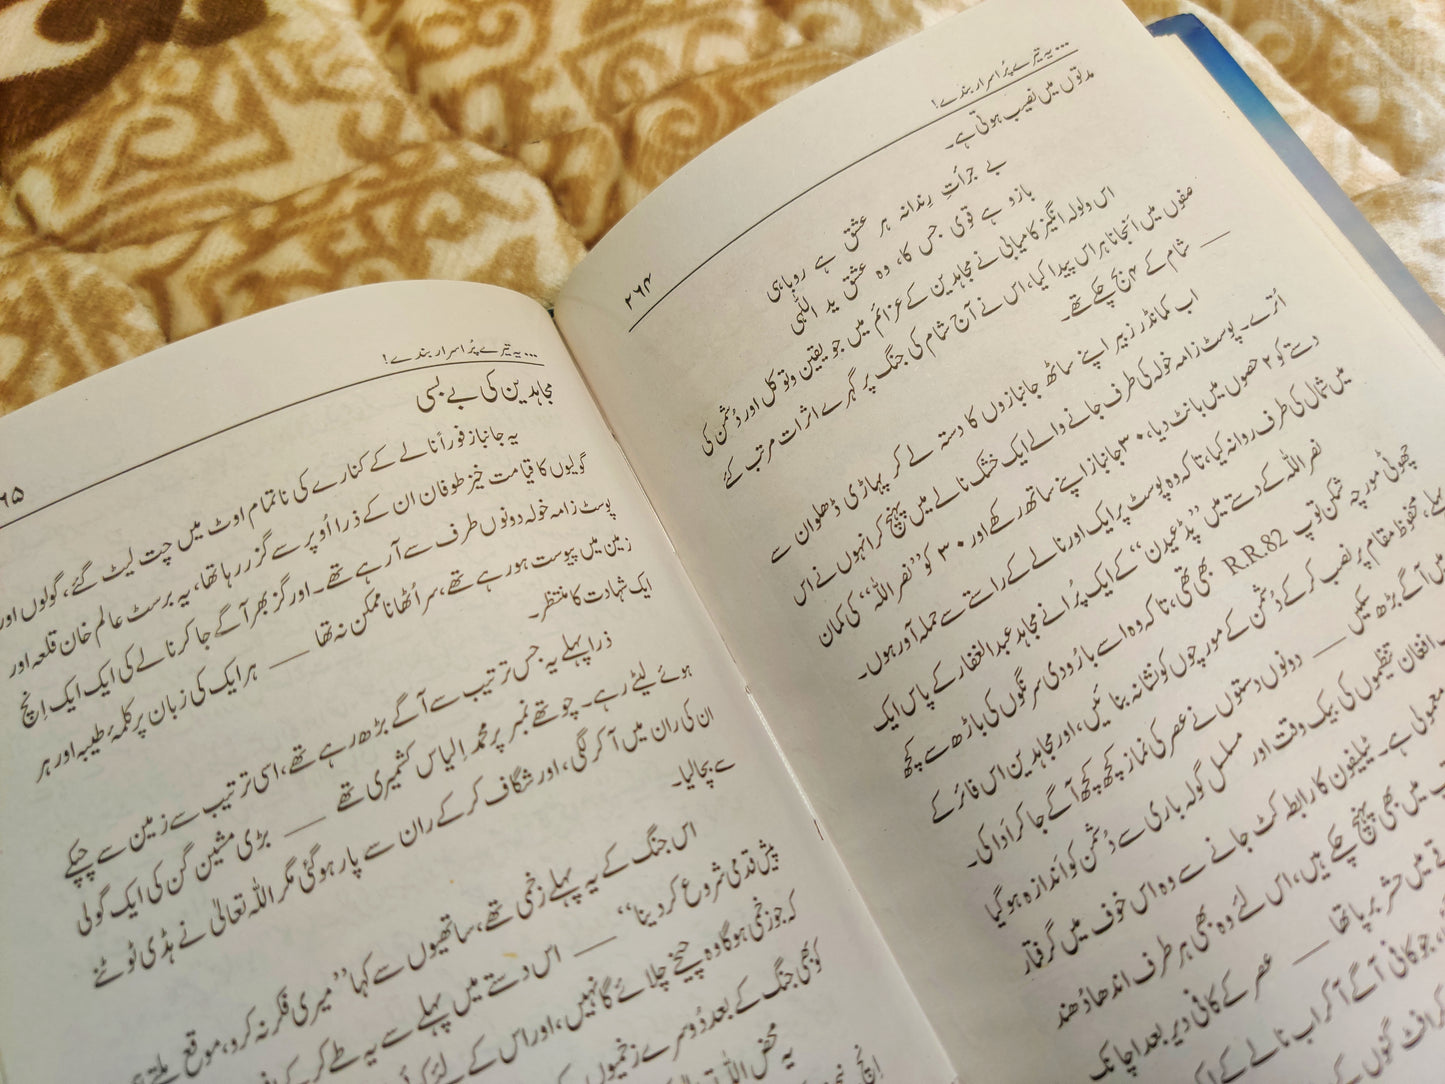 ۲۶۴
... یہ تیرے پُر اسرار بندے!
مدتوں میں نصیب ہوتی ہے۔
بے جرأتِ رندانہ ہر عشق ہے روباہی
بازو ہے قوی جس کا، وہ عشق ید اللّٰہی
اس ولولہ انگیز کامیابی نے مجاہدین کے عزائم میں جو یقین وتوکل اور دُشمن کی
صفوں میں انجانا ہراس پیدا کیا، اس نے آج شام کی جنگ پر گہرے اثرات مرتب کئے
— شام کے ۴ بج چکے تھے۔
اب کمانڈر زبیر اپنے ساٹھ جانبازوں کا دستہ لے کر پہاڑی ڈھلوان سے
اُترے۔ پوسٹ زامہ خولہ کی طرف جانے والے ایک خشک نالے میں پہنچ کر انہوں نے اس
دستے کو ۲ حصوں میں بانٹ دیا، ۳۰ جانباز اپنے ساتھ رکھے اور ۳۰ کو ’’نصر اللہ‘‘ کی کمان
میں شمال کی طرف روانہ کیا، تاکہ وہ پوسٹ پر ایک اور نالے کے راستے سے حملہ آور ہوں۔
نصر اللہ کے دستے میں ’’پڈعیدن‘‘ کے ایک پُرانے مجاہد عبد الغفار کے پاس ایک
چھوٹی مورچہ شکن توپ R.R.82 بھی تھی، تاکہ وہ اسے بارُودی سرنگوں کی باڑھ سے کچھ
پہلے، محفوظ مقام پر نصب کر کے دُشمن کے مورچوں کو نشانہ بنائیں، اور مجاہدین اس فائر کے
میں آگے بڑھ سکیں — دونوں دستوں نے عصر کی نماز کچھ کچھ آگے جا کر ادا کی۔
افغان تنظیموں کی بیک وقت اور مسلسل گولہ باری سے دُشمن کو اندازہ ہو گیا
معمولی ہے۔ ٹیلیفون کا رابطہ کٹ جانے سے وہ اس خوف میں گرفتار
میں بھی پہنچ چکے ہیں، اس لئے وہ بھی ہر طرف اندھا دُھند
میں حشر برپا تھا — عصر کے کافی دیر بعد اچانک
جو کافی آگے آ کر اب نالے کے
کرافٹ گنوں کے
۶۵
... یہ تیرے پُر اسرار بندے!
مجاہدین کی بے بسی
یہ جانباز فوراً نالے کے کنارے کی ناتمام اوٹ میں چت لیٹ گئے، گولوں اور
گولیوں کا قیامت خیز طوفان ان کے ذرا اُوپر سے گزر رہا تھا، یہ برسٹ عالم خان قلعہ اور
پوسٹ زامہ خولہ دونوں طرف سے آ رہے تھے۔ اور گز بھر آگے جا کر نالے کی ایک ایک اِنچ
زمین میں پیوست ہو رہے تھے، سر اُٹھانا ممکن نہ تھا — ہر ایک کی زبان پر کلمۂ طیبہ اور ہر
ایک شہادت کا منتظر۔
ذرا پہلے یہ جس ترتیب سے آگے بڑھ رہے تھے، اسی ترتیب سے زمین سے چپکے
ہوئے لیٹے رہے۔ چوتھے نمبر پر محمد اِلیاس کشمیری تھے — بڑی مشین گن کی ایک گولی
ان کی ران میں آ کر لگی، اور شگاف کر کے ران سے پار ہو گئی مگر اللہ تعالیٰ نے ہڈی ٹوٹنے
سے بچا لیا۔
اس جنگ کے یہ پہلے زخمی تھے، ساتھیوں سے کہا ’’میری فکر نہ کرو، موقع ملتے
پیش قدمی شروع کر دینا‘‘ — اس دستے میں پہلے سے یہ طے کر
کہ جو زخمی ہو گا وہ چیخے چلائے گا نہیں، اور اس کے لئے
کو بھی جنگ کے بعد دُوسرے زخمیوں
یہ محض اللہ
اِنچ